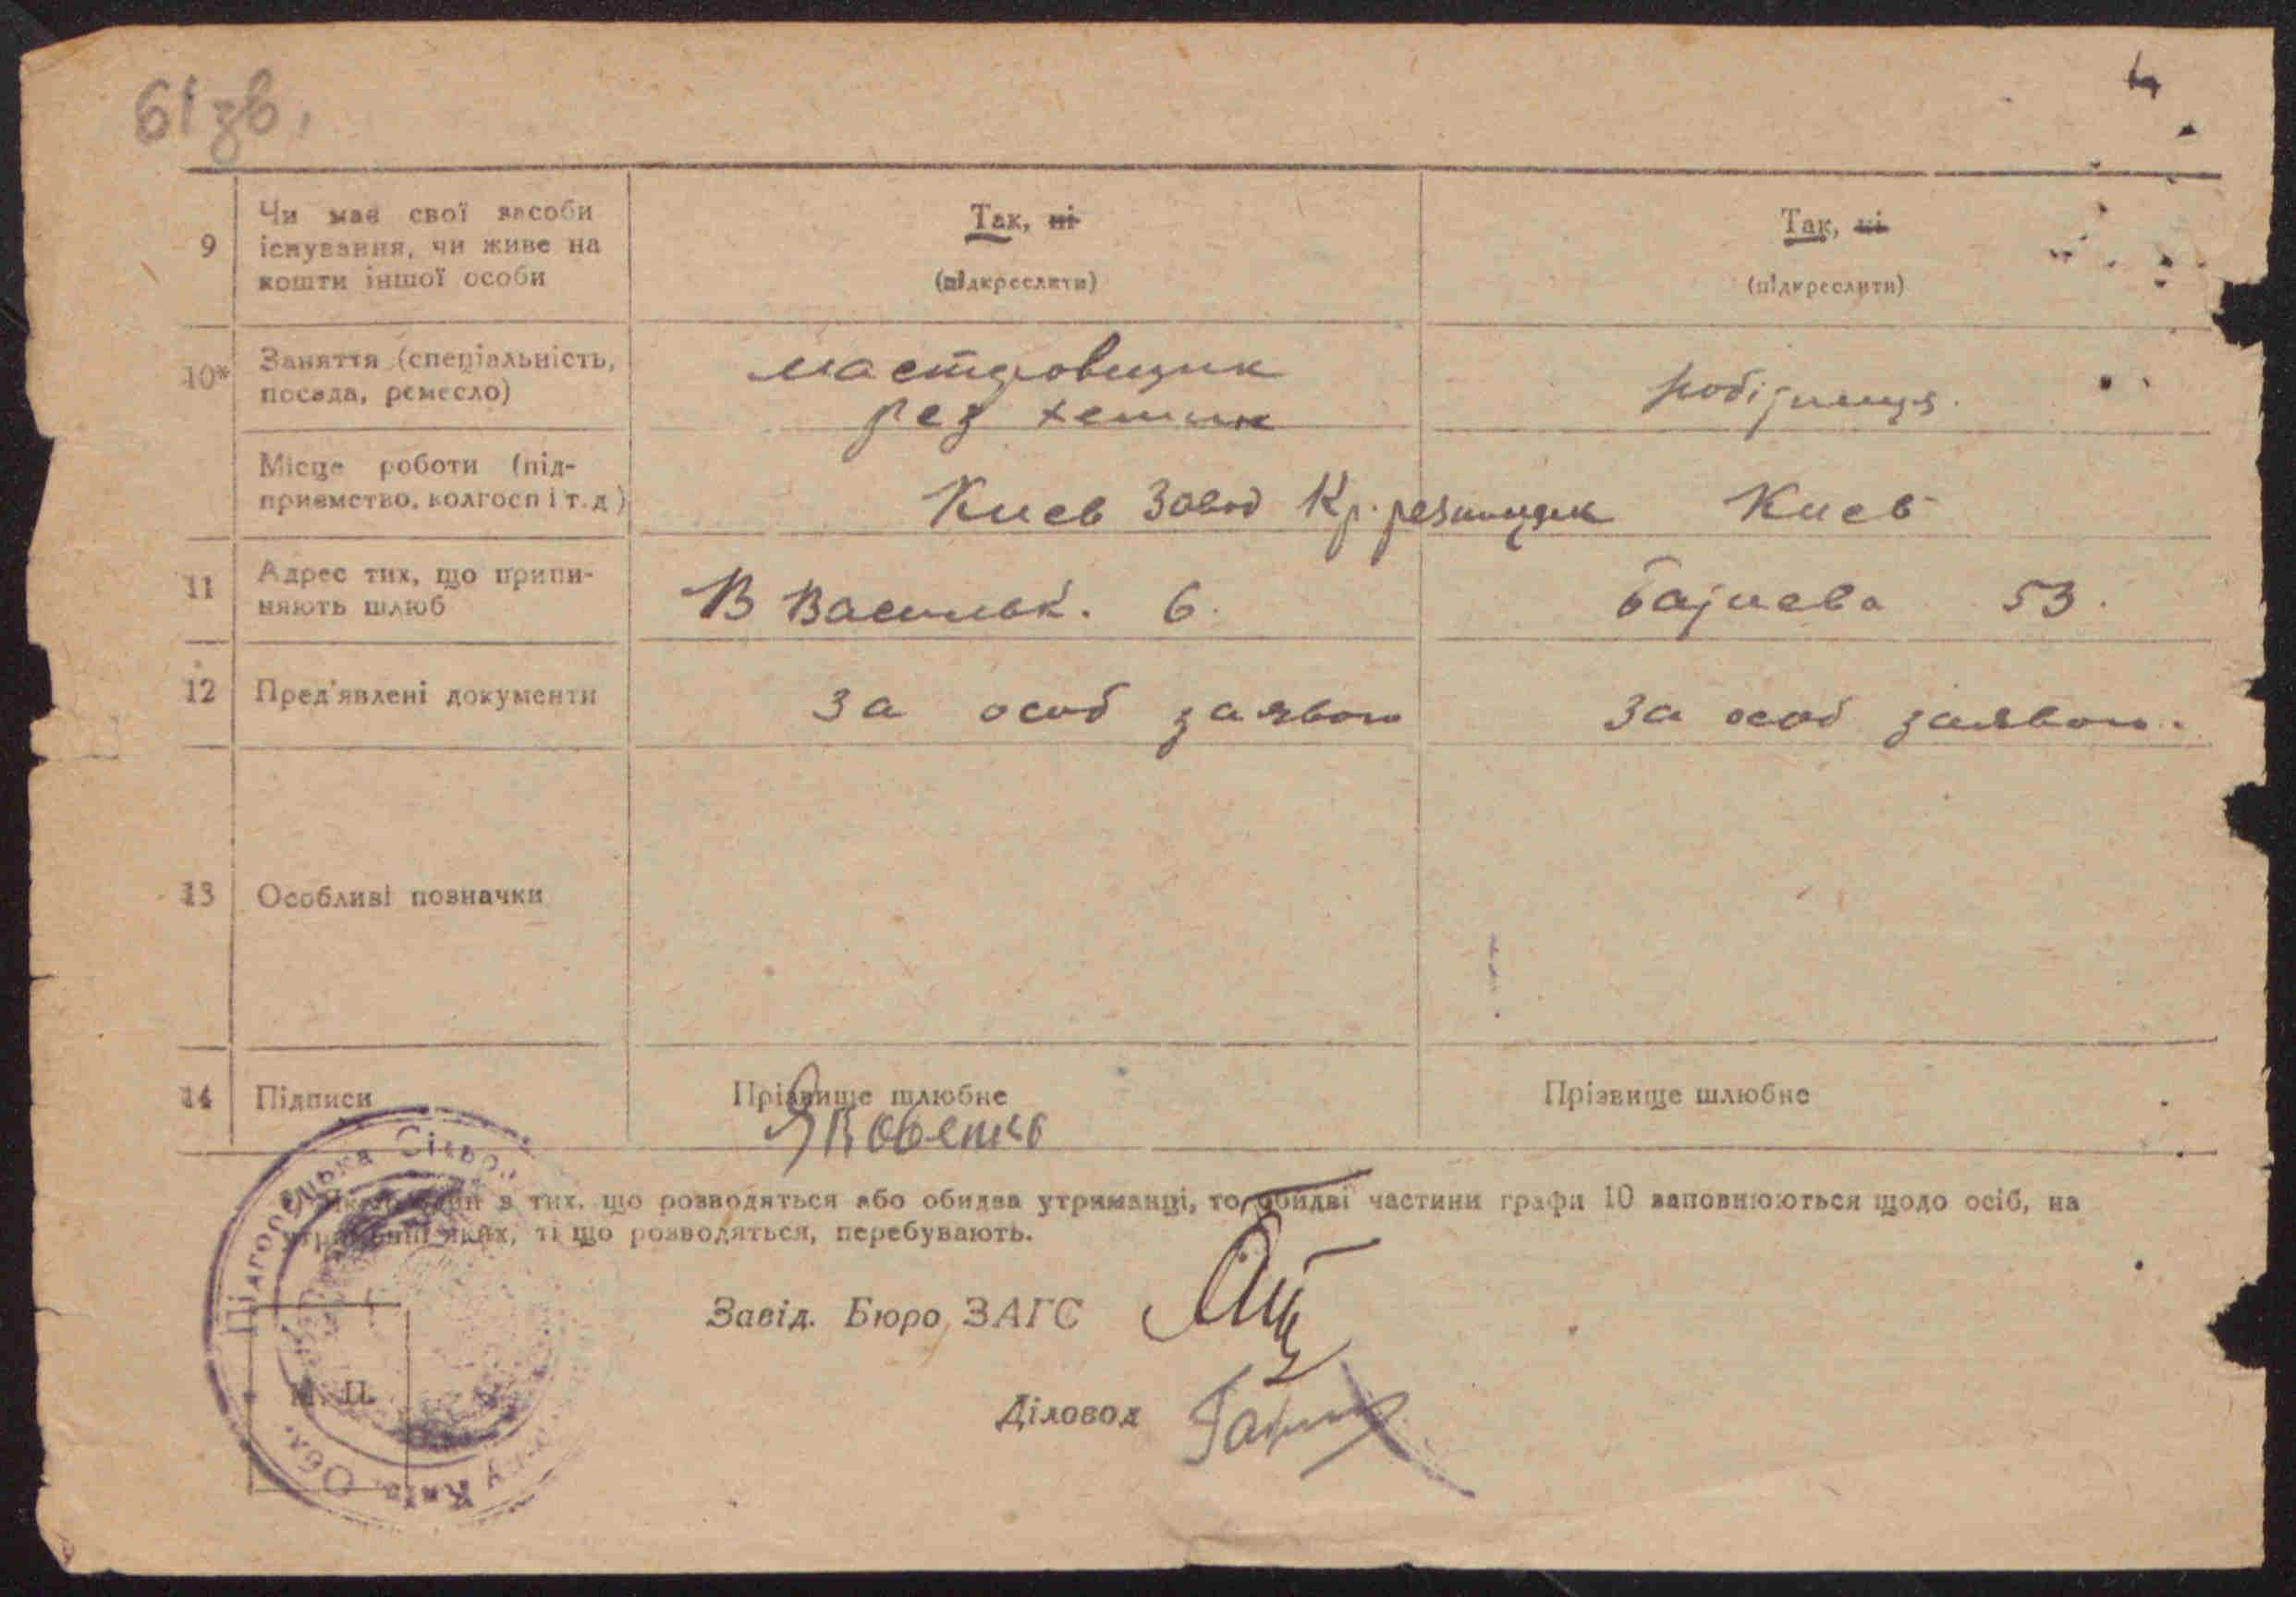 61 зв.
4
9
Чи має свої засоби
існування, чи живе на
кошти іншої особи
Так, ні
(підкреслити)
Так, ні
(підкреслити)
10*
Заняття (спеціальність,
посада, ремесло)
рез
Місце роботи (під-
приємство, колгосп і т. д.)
Киев Завод Кр. резинщик
Киев
11
Адрес тих, що припи-
няють шлюб
В Васильк. 6.
53.
12
Пред'явлені документи
За особ заявою
За особ заявою.
13
Особливі позначки
14
Підписи
Прізвище шлюбне
Яковенко
Прізвище шлюбне
з тих, що розводяться або обидва утриманці, то обидві частини графи 10 заповнюються щодо осіб, на
утриманні яких, ті що розводяться, перебувають.
Завід. Бюро ЗАГС
Діловод
М. П.
Київ. Обл.